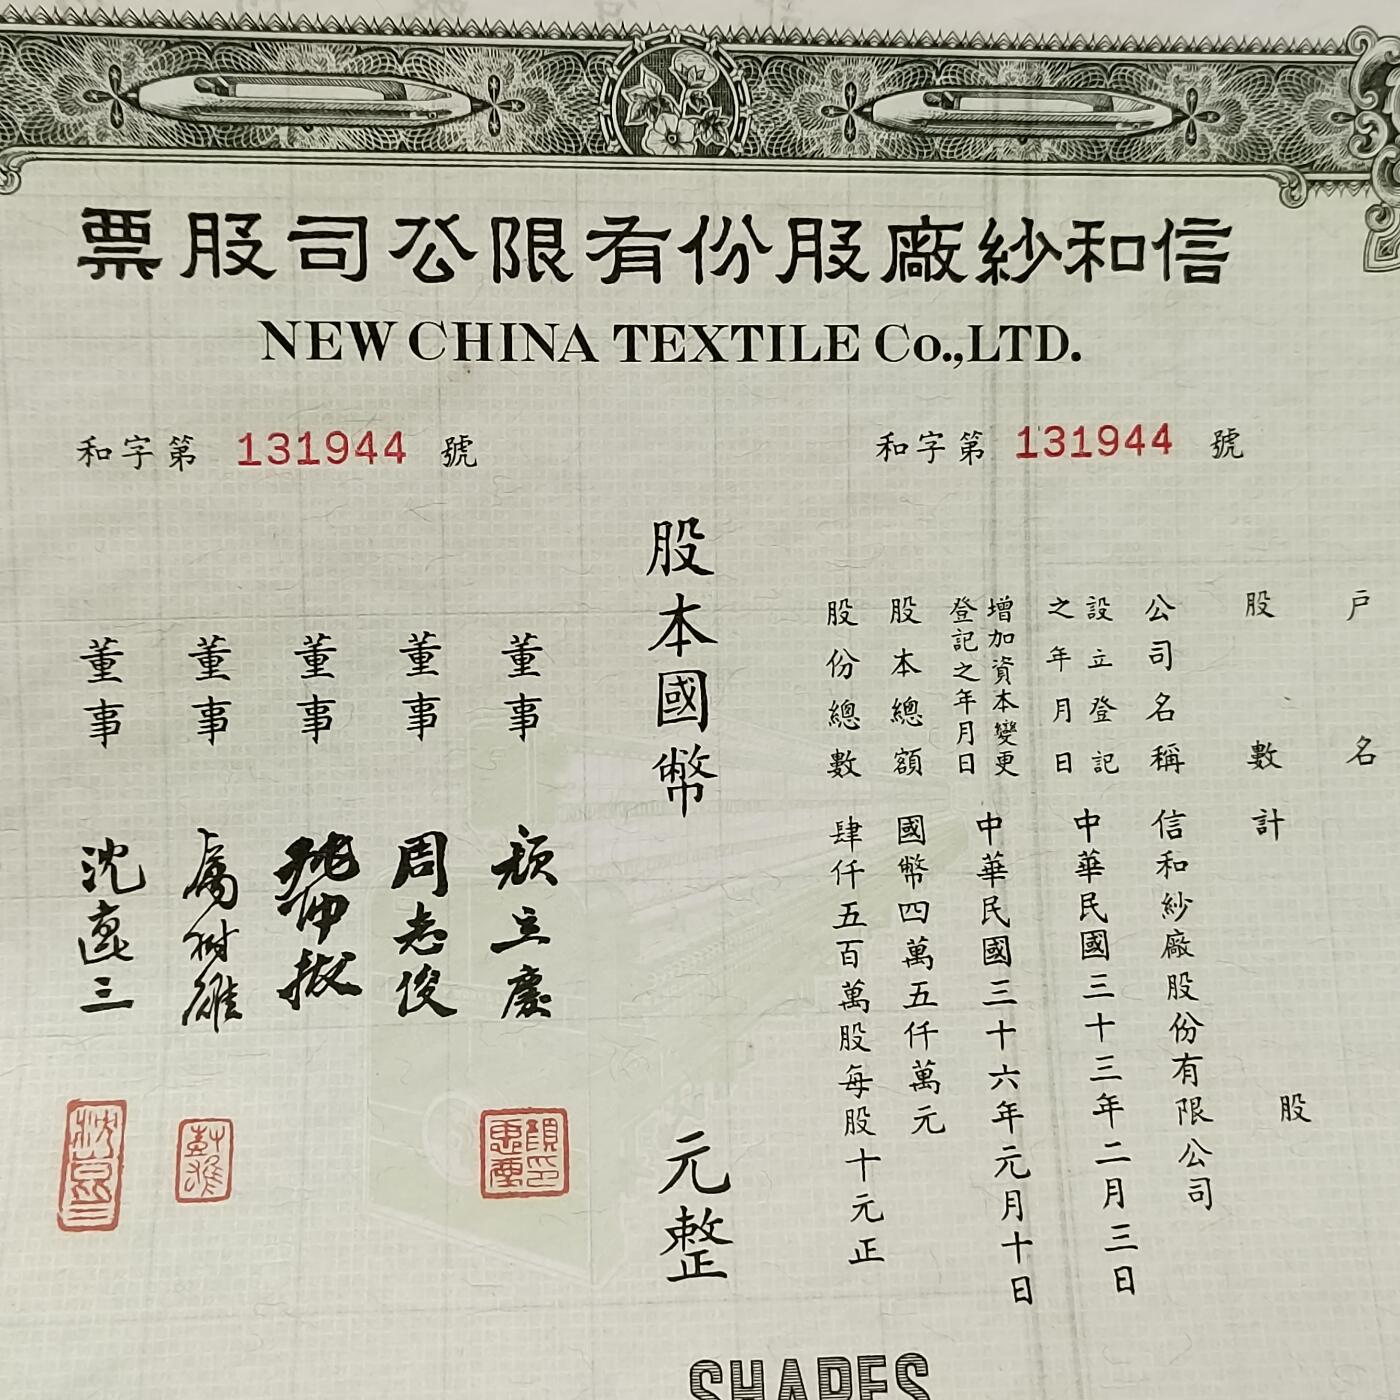 信和紗廠股份有限公司股票
NEW CHINA TEXTILE Co.,LTD.
和字第 131944 號
和字第 131944 號
戶名
股數計 股
公司名稱 信和紗廠股份有限公司
設立登記之年月日 中華民國三十三年二月三日
增加資本變更登記之年月日 中華民國三十六年元月十日
股本總額 國幣四萬五仟萬元
股份總數 肆仟五百萬股每股十元正
股本國幣 元整
董事 顏立慶
董事 周志俊
董事
董事
董事 沈
SHARES